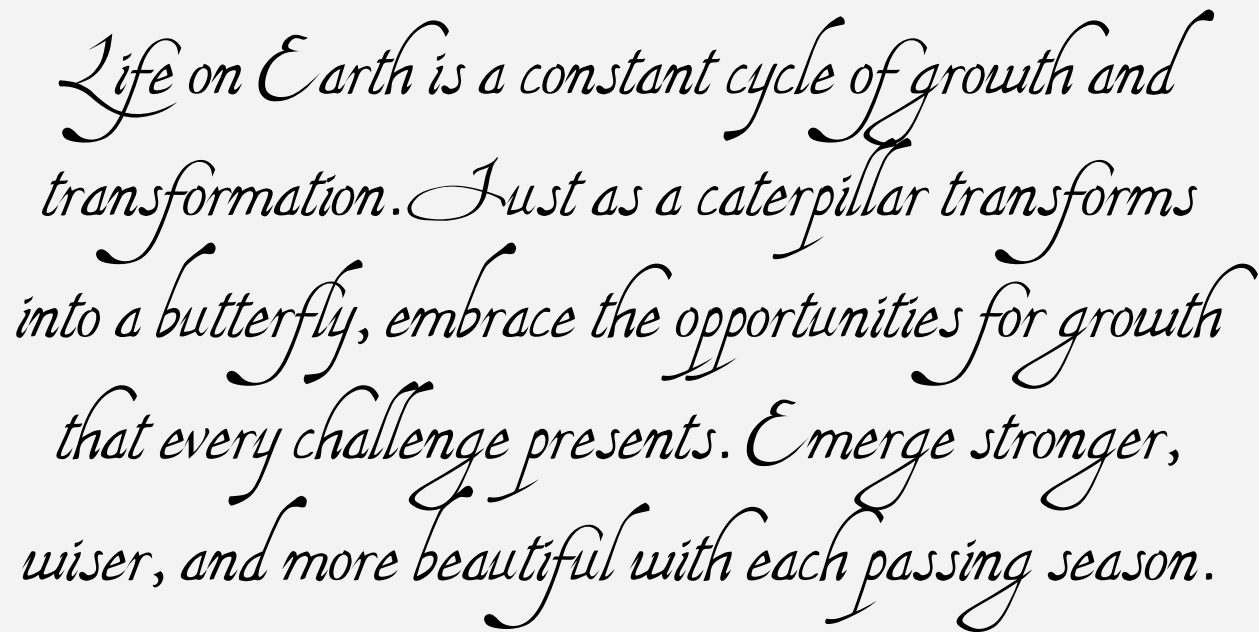 Life on Earth is a constant cycle of growth and
transformation. Just as a caterpillar transforms
into a butterfly, embrace the opportunities for growth
that every challenge presents. Emerge stronger,
wiser, and more beautiful with each passing season.